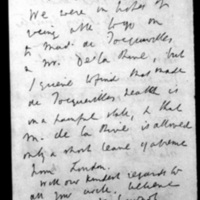 We were in hopes of
being able to go on
to Mad. de Tocqueville's
& Mr. De la Rive, but
I grieve to find that Made
de Tocqueville's health is
in a painful state, & that
M. de la Rive is allowed
only a short leave of absence
from London.
With our kindest regards to
all your circle, believe